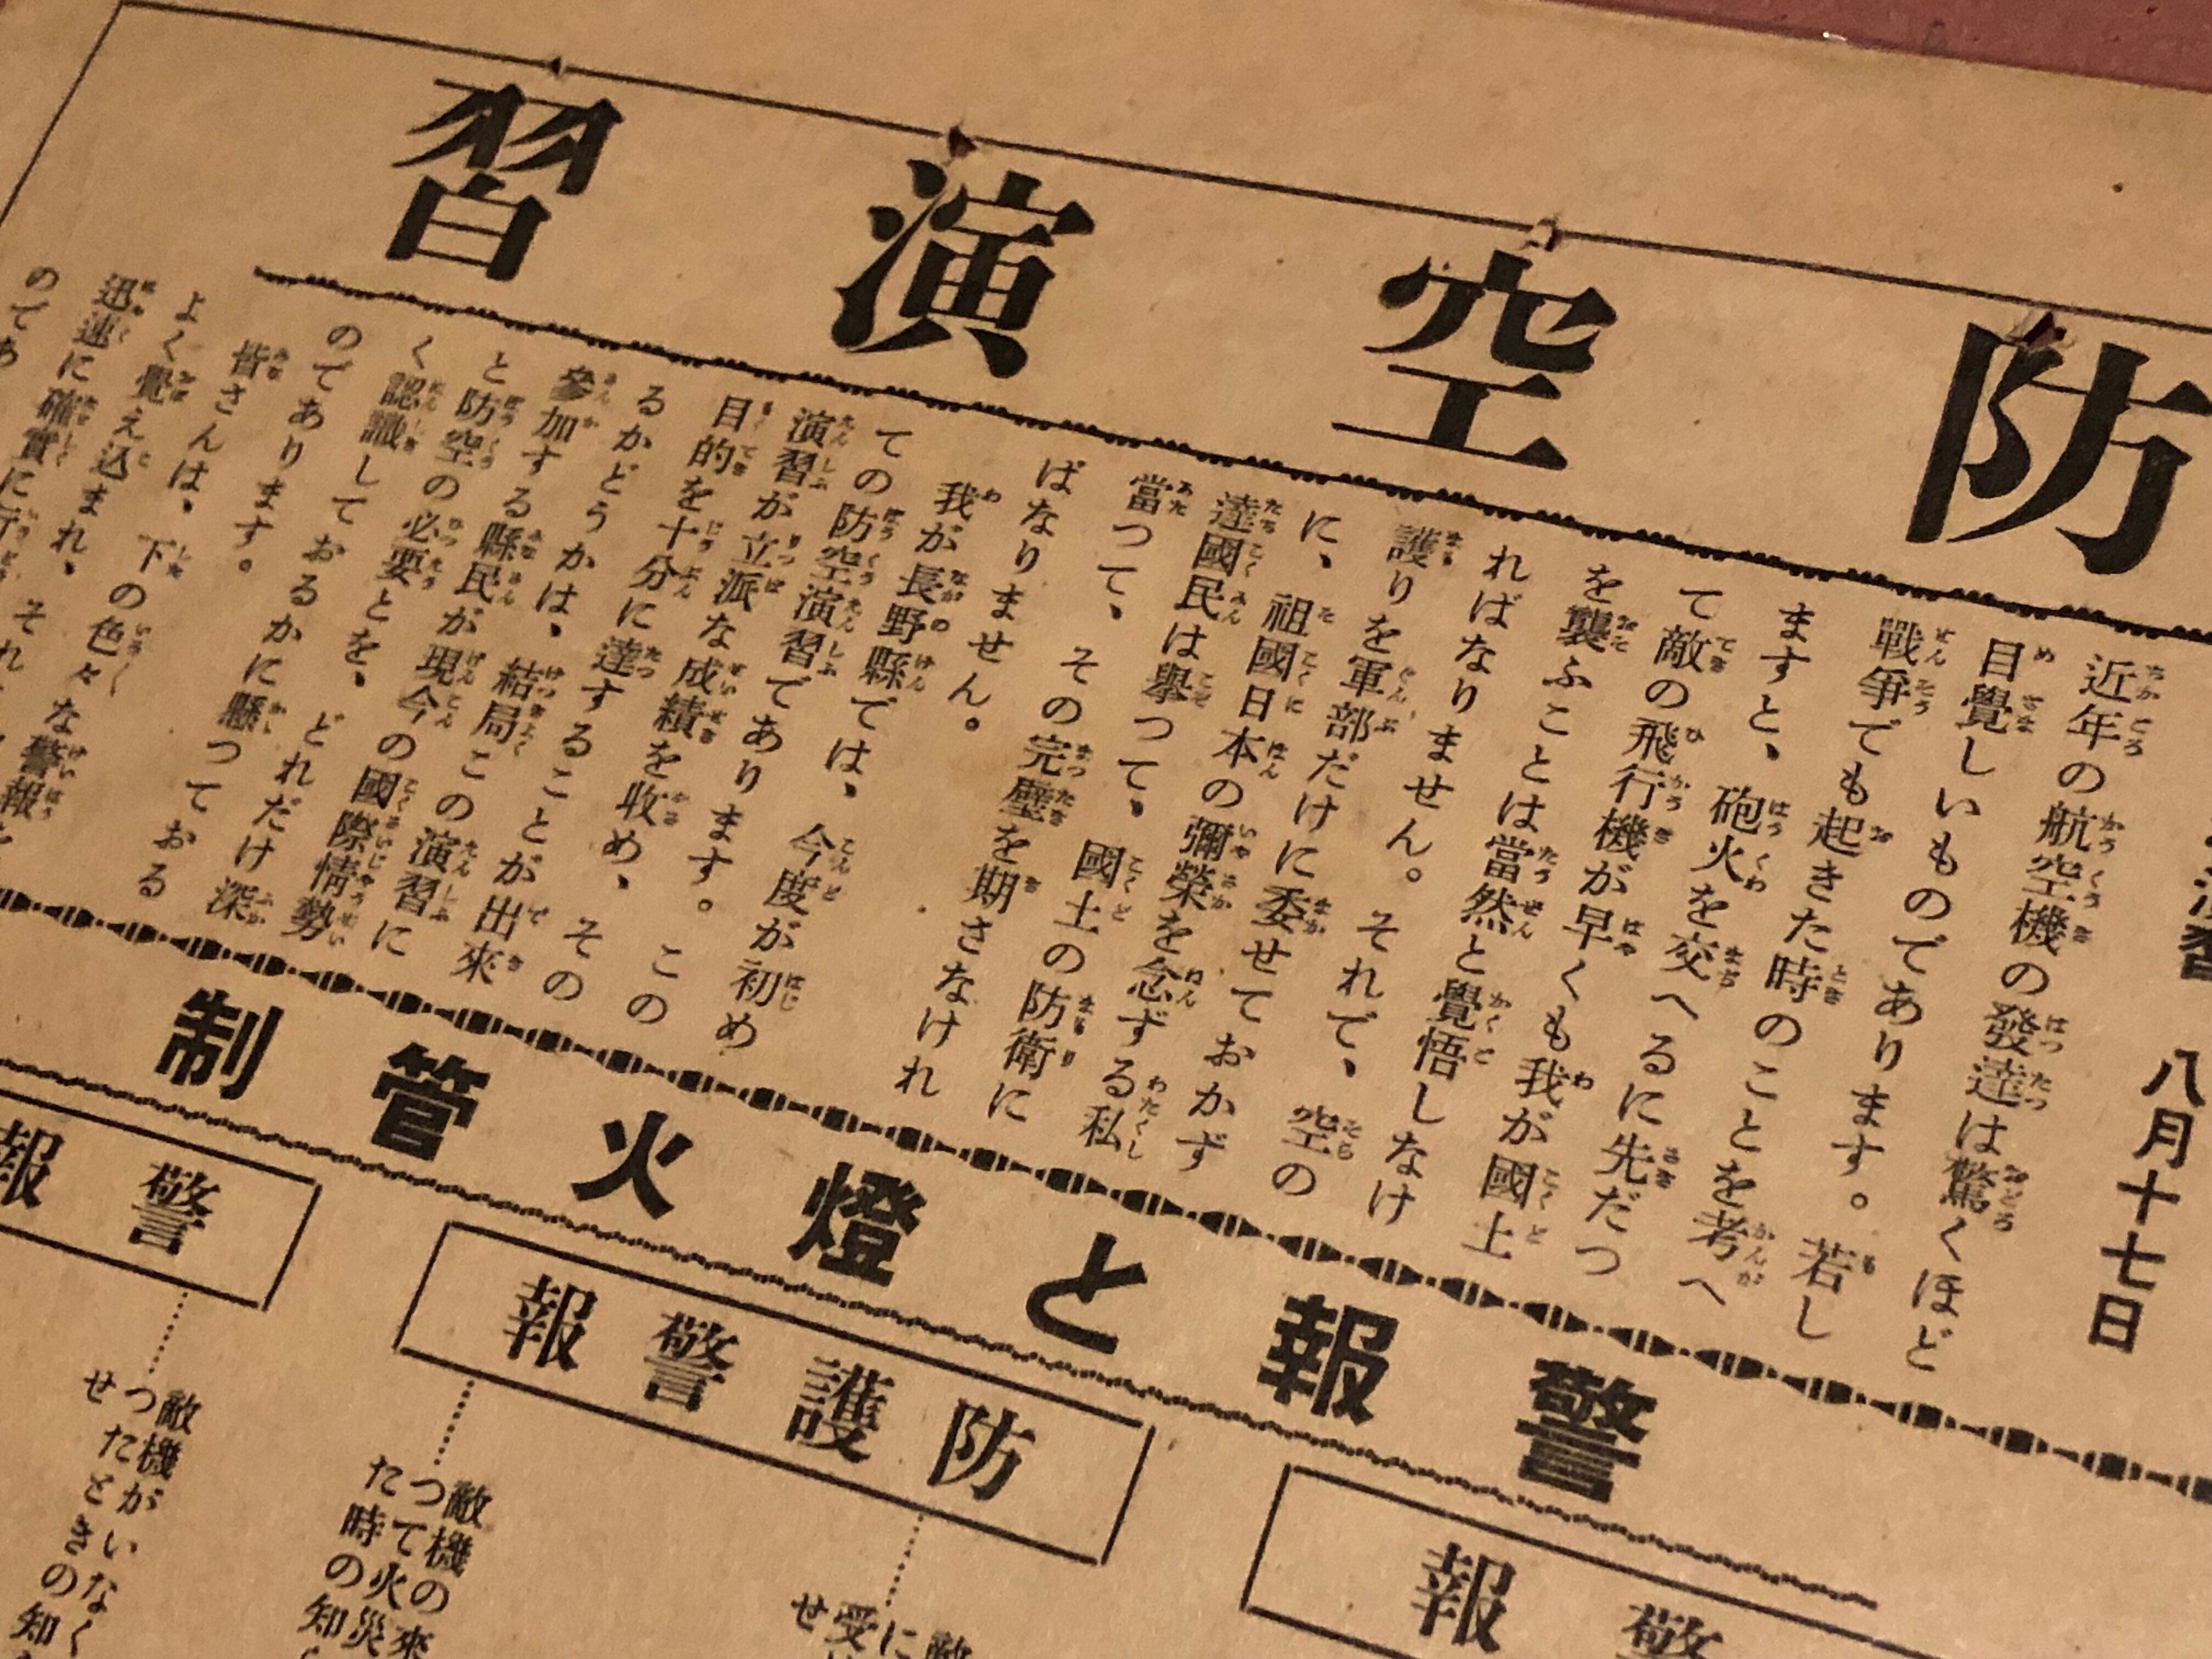 防空演習
八月十七日
近年の航空機の發達は驚くほど
目覺しいものであります。若し
戰爭でも起きた時のことを考へ
ますと、砲火を交へるに先だつ
て敵の飛行機が早くも我が國土
を襲ふことは當然と覺悟しなけ
ればなりません。それで、空の
護りを軍部だけに委せておかず
に、祖國日本の彌榮を念ずる私
達國民は擧つて、國土の防衛に
當つて、その完璧を期さなけれ
ばなりません。
我が長野縣では、今度が初め
ての防空演習であります。この
演習が立派な成績を收め、その
目的を十分に達することが出來
るかどうかは、結局この演習に
參加する縣民が現今の國際情勢
と防空の必要とを、どれだけ深
く認識しておるかに懸つておる
のであります。
皆さんは、下の色々な警報を
よく覺え込まれ、
迅速に確實に
のであ
警報と燈火管制
警報
防護警報
敵機の來
つて火災
た時の知
警報
敵機がいなく
つたときの知
せ